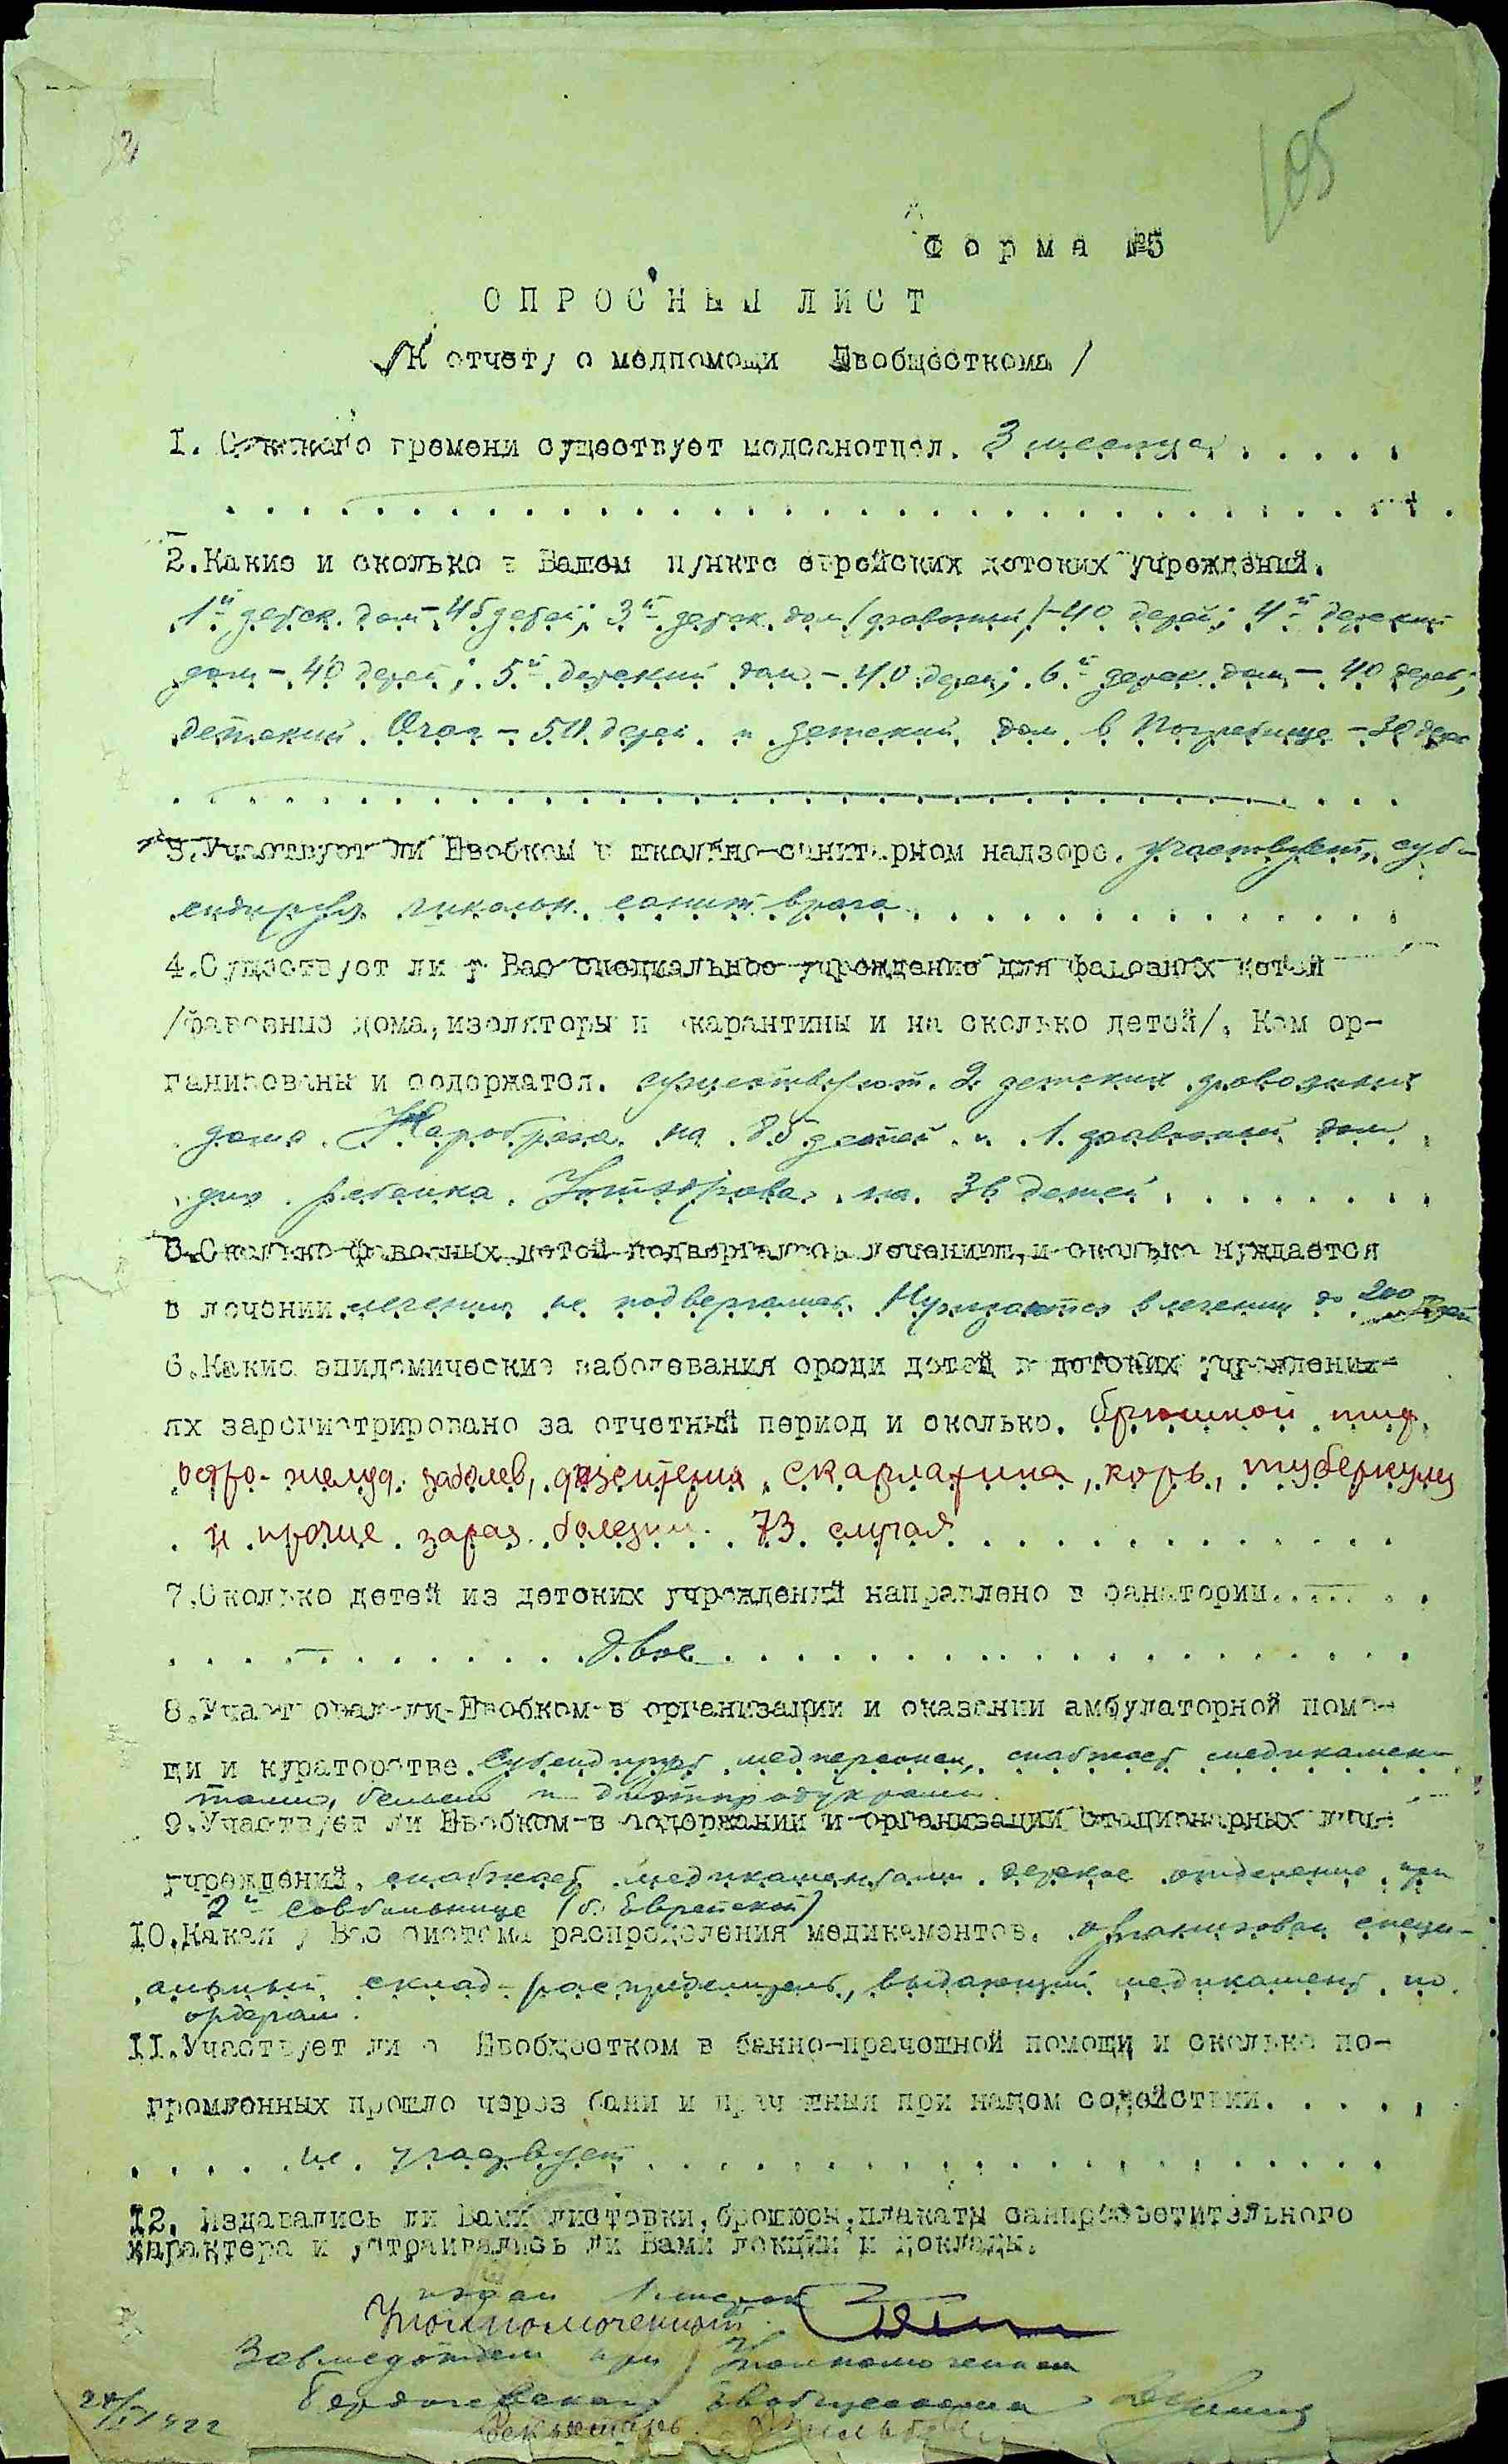 105
Форма №5
ОПРОСНЫЙ ЛИСТ
/К отчету о медпомощи Евобщесткома/
1. С какого времени существует медсанотдел. 3 месяца
2. Какие и сколько в Вашем пункте еврейских детских учреждений.
1й детск. дом - 45 детей; 3й детск. дом /фавозный/ - 40 детей; 4й детский
дом - 40 детей; 5й детский дом - 40 детей; 6й детск. дом - 40 детей;
детский Очаг - 50 детей и детский дом в Погребище - 30 детей
3. Участвует ли Евобком в школьно-санитарном надзоре. участвует, суб-
сидирует школьн. санит. врача
4. Существует ли у Вас специальное учреждение для фавозных детей
/фавозные дома, изоляторы и карантины и на сколько детей/. Кем ор-
ганизованы и содержатся. существуют 2 детских фавозных
дома Наробраза на 85 детей и 1 фавозный дом
для ребенка Уотздрава на 36 детей
5. Сколько фавозных детей подвергалось лечению, и сколько нуждается
в лечении. лечению не подвергались. Нуждаются в лечении до 200 детей
6. Какие эпидемические заболевания среди детей в детских учреждени-
ях зарегистрировано за отчетный период и сколько. брюшной тиф,
остро-желуд. заболев, дизентерия, скарлатина, корь, туберкулез
и прочие зараз. болезни. 73 случая
7. Сколько детей из детских учреждений направлено в санатории.
двое
8. Участвовал ли Евобком в организации и оказании амбулаторной помо-
щи и кураторстве. Субсидирует медперсонал, снабжает медикамен-
тами, бельем и диэтпродуктами.
9. Участвует ли Евобком в содержании и организации стационарных леч-
учреждений. снабжает медикаментами детское отделение при
2й Совбольнице (б. Еврейской)
10. Какая у Вас система распределения медикаментов. организован специ-
альный склад-распределитель, выдающий медикамент по
ордерам.
11. Участвует ли Евобщестком в банно-прачешной помощи и сколько по-
громленных прошло через бани и прачешныя при нашем содействии.
не участвует
12. Издавались ли Вами листовки, брошюры, плакаты санпросветительного
характера и устраивались ли Вами лекции и доклады.
издан 1
Уполномоченный
Завмедотдел при Уполномоченном
Бердичевского Евобщесткома
1922
Секретарь